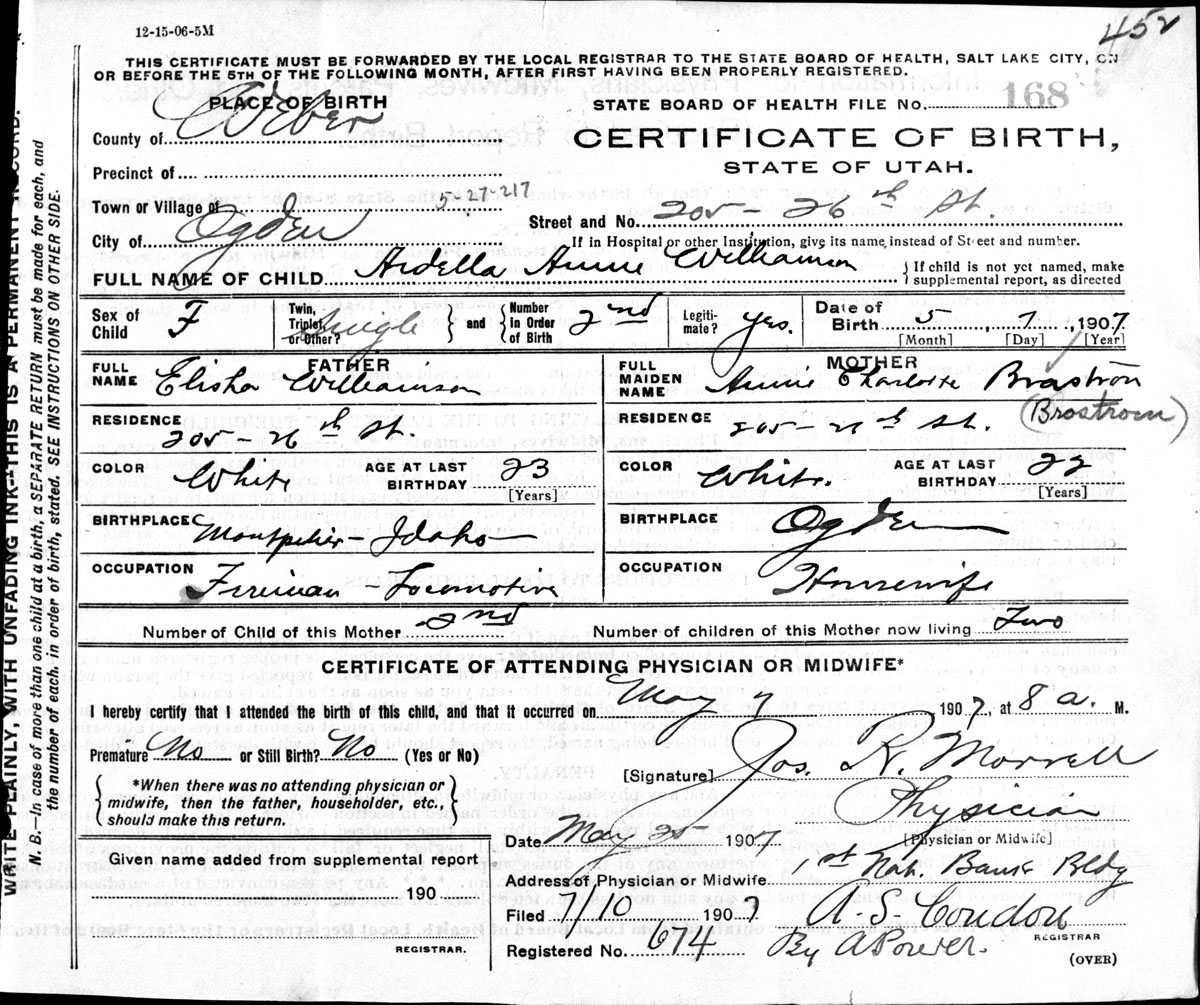 452
12-15-06-5M
THIS CERTIFICATE MUST BE FORWARDED BY THE LOCAL REGISTRAR TO THE STATE BOARD OF HEALTH, SALT LAKE CITY, ON
OR BEFORE THE 5TH OF THE FOLLOWING MONTH, AFTER FIRST HAVING BEEN PROPERLY REGISTERED.
PLACE OF BIRTH
County of Weber
Precinct of
Town or Village of 5-27-217
City of Ogden
STATE BOARD OF HEALTH FILE No. 168
CERTIFICATE OF BIRTH,
STATE OF UTAH.
Street and No. 205 - 26th St.
If in Hospital or other Institution, give its name instead of Street and number.
FULL NAME OF CHILD Ardella Annie Williamson
If child is not yet named, make
supplemental report, as directed
Sex of Child F
Twin, Triplet or Other? Single
and
Number in Order of Birth 2nd
Legitimate? Yes.
Date of Birth 5, 7, 1907
[Month] [Day] [Year]
FATHER
FULL NAME Elisha Williamson
RESIDENCE 205 - 26th St.
COLOR White
AGE AT LAST BIRTHDAY 23
[Years]
BIRTHPLACE Montpelier - Idaho
OCCUPATION Fireman - Locomotive
MOTHER
FULL MAIDEN NAME Annie Charlotte Brastron
(Brostrom)
RESIDENCE 205 - 2 th St.
COLOR White.
AGE AT LAST BIRTHDAY 22
[Years]
BIRTHPLACE Ogden
OCCUPATION Housewife
Number of Child of this Mother 2nd
Number of children of this Mother now living Two
CERTIFICATE OF ATTENDING PHYSICIAN OR MIDWIFE*
I hereby certify that I attended the birth of this child, and that it occurred on May 7 1907, at 8 a. M.
Premature No or Still Birth? No (Yes or No)
*When there was no attending physician or
midwife, then the father, householder, etc.,
should make this return.
Given name added from supplemental report
190
REGISTRAR.
[Signature] Jos. R. Morrell
Physician
[Physician or Midwife]
Date May 25 1907
Address of Physician or Midwife. 1st Nat. Bank Bldg
Filed 1907
A. S. Condon
REGISTRAR
Registered No. 674
By A Power.
(OVER)
WRITE PLAINLY, WITH UNFADING INK-THIS IS A PERMANENT RECORD.
N. B.—In case of more than one child at a birth, a SEPARATE RETURN must be made for each, and
the number of each, in order of birth, stated. SEE INSTRUCTIONS ON OTHER SIDE.